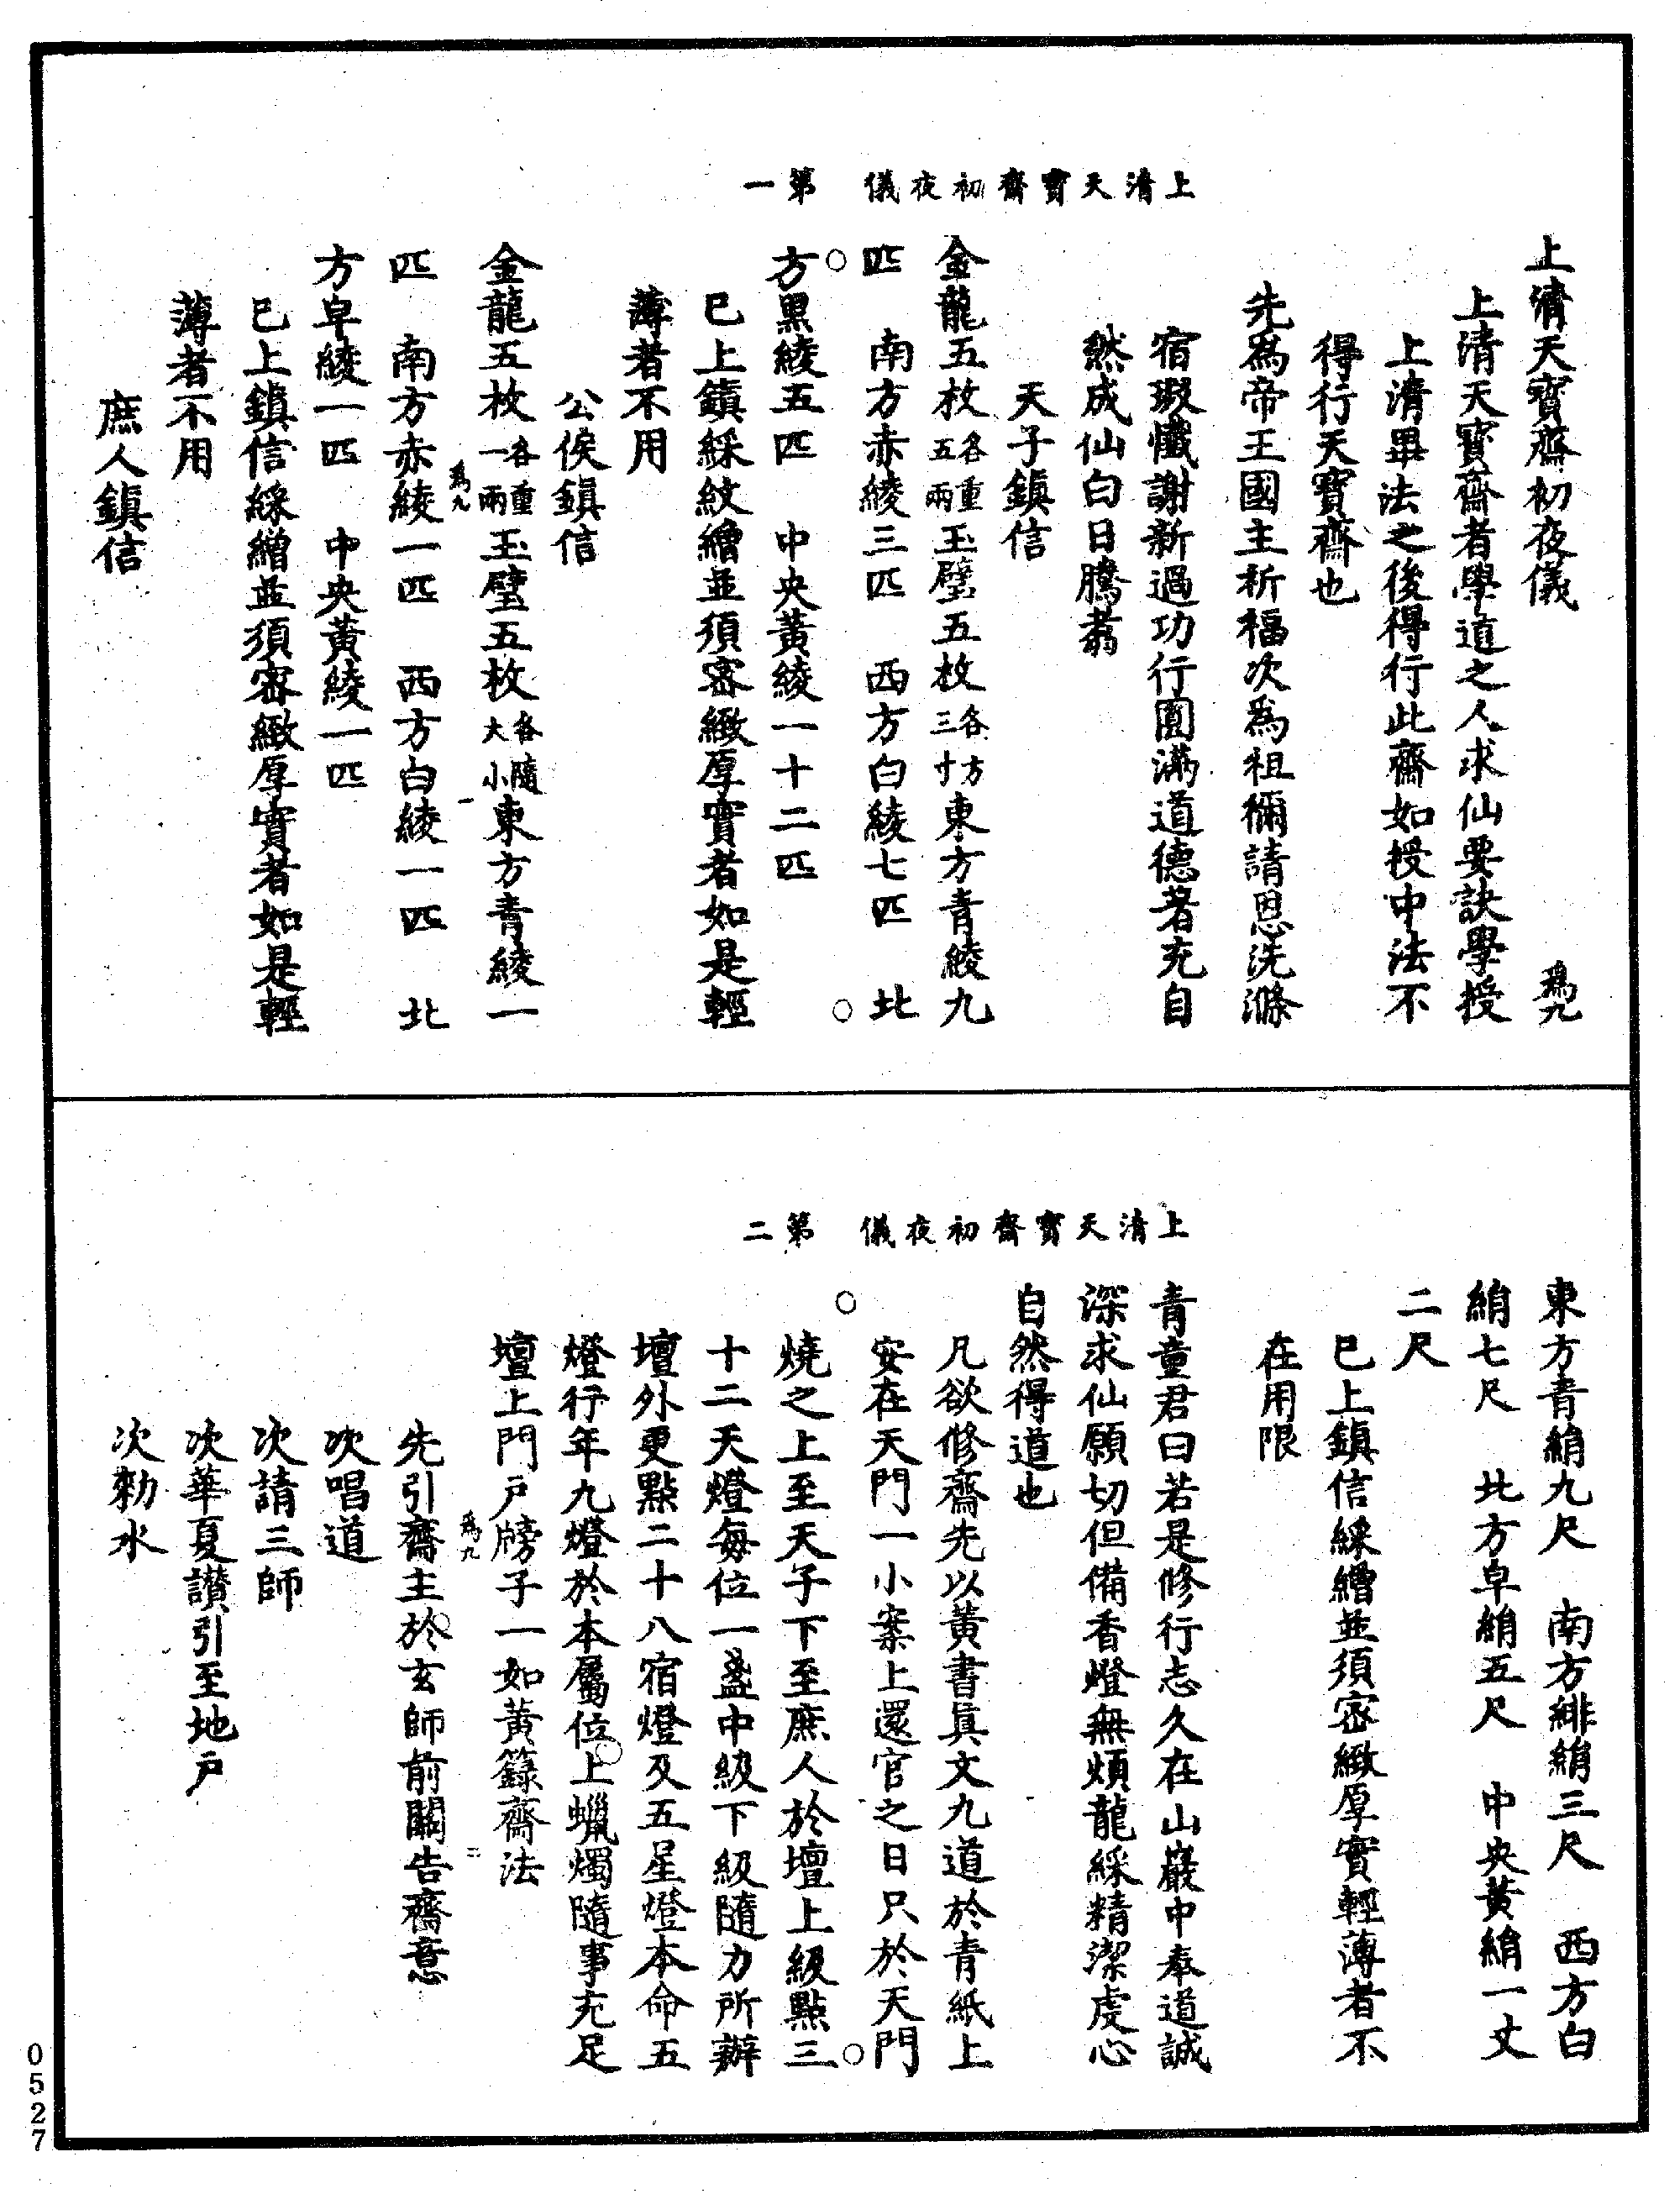 上清天寶齋初夜儀　第一
上清天寶齋初夜儀　爲九
上清天寶齋者學道之人求仙要訣學授
上清畢法之後得行此齋如授中法不
得行天寶齋也
先爲帝王國主祈福次爲祖禰請恩洗滌
宿瑕懺謝新過功行圓滿道德著充自
然成仙白日騰翥
天子鎮信
金龍五枚各重五兩玉璧五枚各方三寸東方青綾九
匹　南方赤綾三匹　西方白綾七匹　北
方黑綾五匹　中央黃綾一十二匹
已上鎮綵紋繒並須密緻厚實者如是輕
薄者不用
公侯鎮信
金龍五枚各重一兩玉璧五枚各隨大小東方青綾一
爲九　一
匹　南方赤綾一匹　西方白綾一匹　北
方皁綾一匹　中央黃綾一匹
已上鎮信綵繒並須密緻厚實者如是輕
薄者不用
庶人鎮信
上清天寶齋初夜儀　第二
東方青絹九尺　南方緋絹三尺　西方白
絹七尺　北方皁絹五尺　中央黃絹一丈
二尺
已上鎮信綵繒並須密緻厚實輕薄者不
在用限
青童君曰若是修行志久在山巖中奉道誠
深求仙願切但備香燈無煩龍綵精潔虔心
自然得道也
凡欲修齋先以黃書眞文九道於青紙上
安在天門一小案上還官之日只於天門
燒之上至天子下至庶人於壇上級點三
十二天燈每位一盞中級下級隨力所辦
壇外更點二十八宿燈及五星燈本命五
燈行年九燈於本屬位上蠟燭隨事充足
壇上門戶牓子一如黃籙齋法
爲九　二
先引齋主於玄師前關告齋意
次唱道
次請三師
次華夏讃引至地戶
次勑水
0527